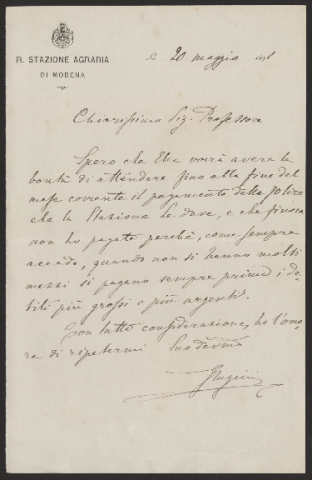 R. STAZIONE AGRARIA
DI MODENA
20 maggio
Chiarissimo Sig. Professore
Spero che Ella vorrà avere la
bontà di attendere fino alla fine del
mese corrente il pagamento della polizza
che la Stazione Le deve, e che finora
non ho pagato perchè, come sempre
accade, quando non si hanno molti
mezzi si pagano sempre prima i de-
biti più grossi o più urgenti.
Con tutta considerazione, ho l'ono-
re di ripetermi Suo devmo